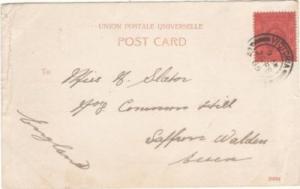 UNION POSTALE UNIVERSELLE
POST CARD
To
Miss M. Slator
Common Hill
Saffron Walden
Essex
England
VICTORIA